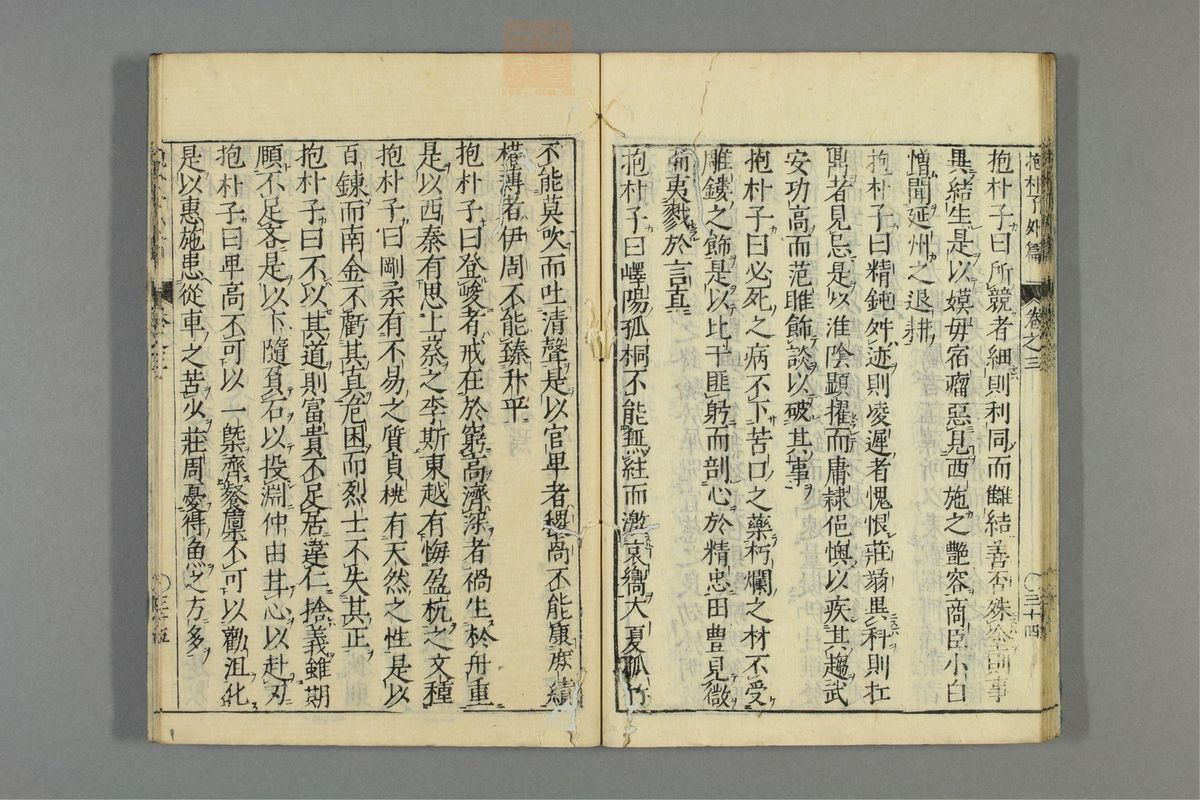 抱朴子外篇 卷之三 三十四
抱朴子曰所競者細則利同而讎結善否殊塗則事
異結生是以嫫毋宿瘤惡見西施之艷容商臣小白
憎聞延州之退耕
抱朴子曰精鈍舛迹則凌遲者愧恨壯弱異科則扛
鼎者見忌是以淮陰顕擢而庸隷悒懊以疾其超武
安功高而范雎飾談以破其事
抱朴子曰必死之病不下苦口之藥朽爛之材不受
雕鏤之飾是以比干匪躬而剖心於精忠田豊見微
而夷戮於言直
抱朴子曰嶧陽孤桐不能無絃而激哀響大夏孤竹
不能莫吹而吐清聲是以官卑者稷卨不能康庶績
權薄者伊周不能臻升平
抱朴子曰登峻者戒在於窮高濟深者禍生於舟重
是以西秦有思上蔡之李斯東越有悔盈杭之文種
抱朴子曰剛柔有不易之質貞桃有天然之性是以
百錬而南金不虧其真危困而烈士不失其正
抱朴子曰不以其道則富貴不足居違仁捨義雖期
願不足吝是以卞隨負石以投淵仲由甘心以赴刃
抱朴子曰卑高不可以一槩齊餐廩不可以勸沮化
是以惠施患從車之苦少莊周憂得魚之方多
三十五